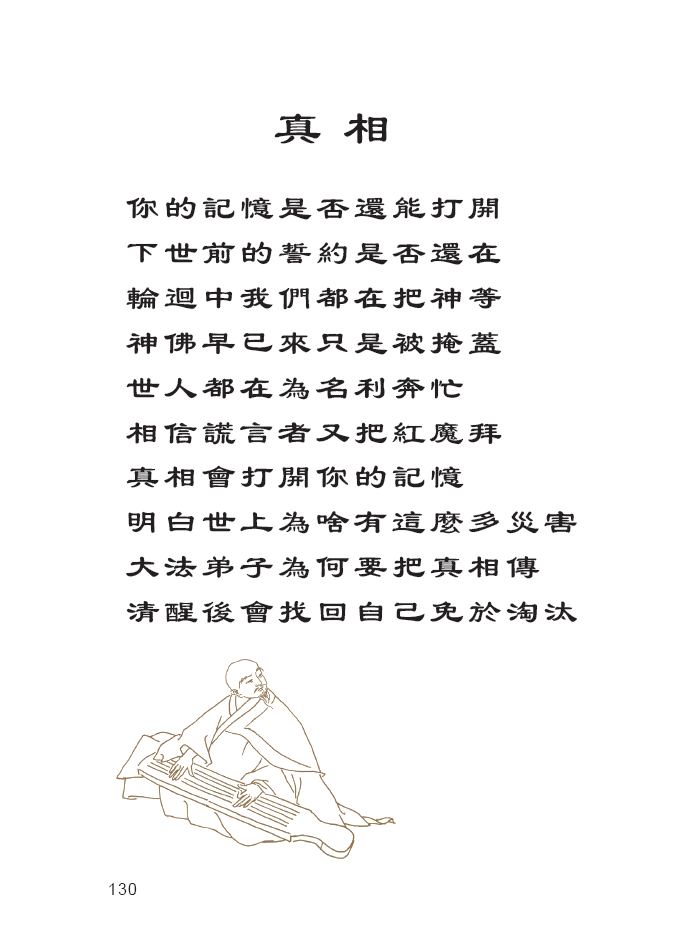 真相
你的記憶是否還能打開
下世前的誓約是否還在
輪迴中我們都在把神等
神佛早已來只是被掩蓋
世人都在為名利奔忙
相信謊言者又把紅魔拜
真相會打開你的記憶
明白世上為啥有這麼多災害
大法弟子為何要把真相傳
清醒後會找回自己免於淘汰
130